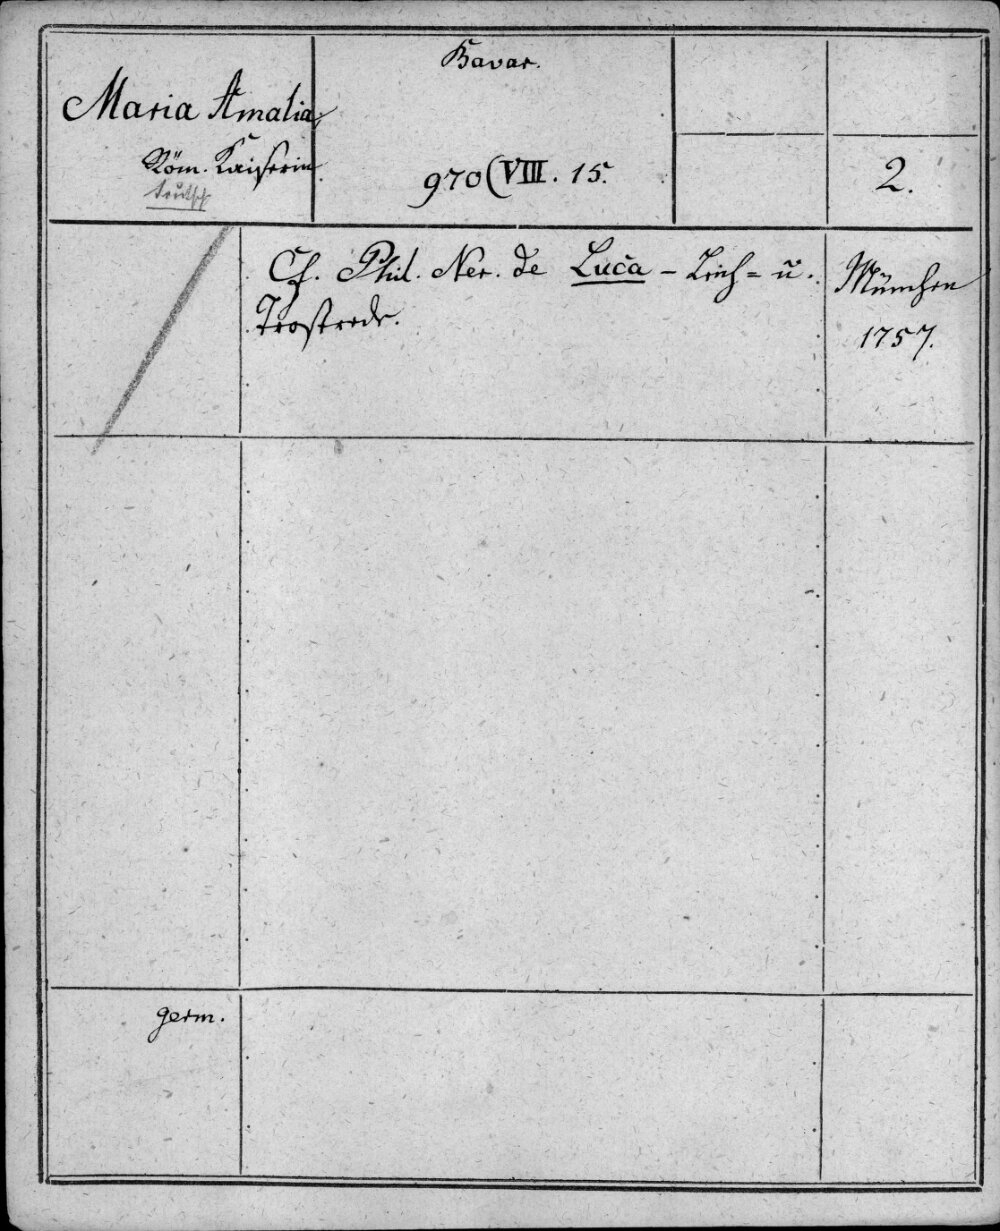 Maria Amalia,
Röm. Kaiserin.
deutsch
Bavar.
970 (VIII. 15.
2.
Cf. Phil. Ner. de Luca - Leich= u.
Trostrede.
München
1757.
germ.